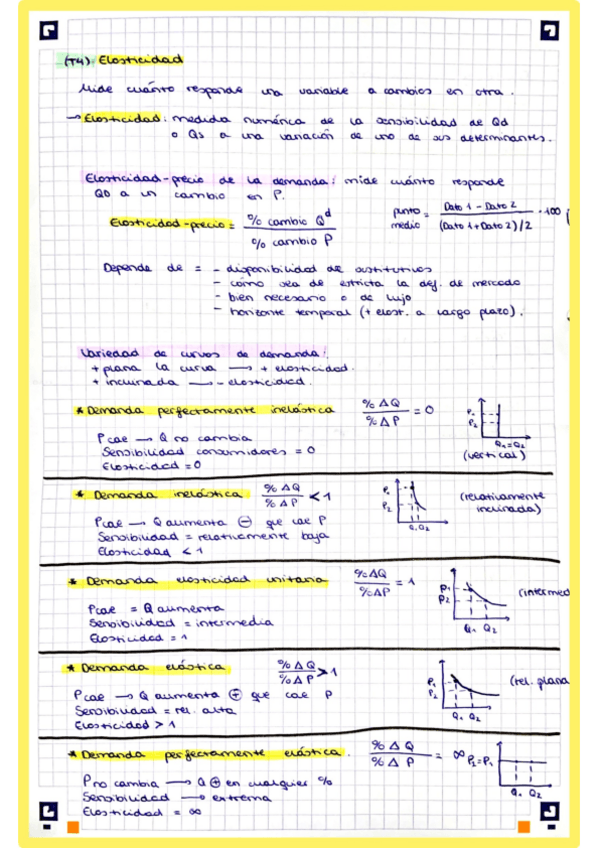 (T4) Elasticidad
Mide cuánto responde una variable a cambios en otra.
→ Elasticidad: medida numérica de la sensibilidad de Qd
o Qs a una variación de uno de sus determinantes.
Elasticidad-precio de la demanda: mide cuánto responde
QD a un cambio en P.
Elasticidad-precio = % cambio Q^d / % cambio P
punto medio = Dato 1 - Dato 2 / (Dato 1 + Dato 2)/2 · 100 (
Depende de = - disponibilidad de sustitutivos
- cómo sea de estricta la def. de mercado
- bien necesario o de lujo
- horizonte temporal (+ elast. a largo plazo).
Variedad de curvas de demanda:
+ plana la curva → + elasticidad.
+ inclinada → - elasticidad.
* Demanda perfectamente inelástica %ΔQ / %ΔP = 0
P cae → Q no cambia
Sensibilidad consumidores = 0
Elasticidad = 0
P₁
P₂
Q₁=Q₂
(vertical)
* Demanda inelástica %ΔQ / %ΔP < 1
P cae → Q aumenta ⊖ que cae P
Sensibilidad = relativamente baja
Elasticidad < 1
P₁
P₂
Q₁ Q₂
(relativamente
inclinada)
* Demanda elasticidad unitaria %ΔQ / %ΔP = 1
P cae = Q aumenta
Sensibilidad = intermedia
Elasticidad = 1
P₁
P₂
Q₁ Q₂
(intermed
* Demanda elástica %ΔQ / %ΔP > 1
P cae → Q aumenta ⊕ que cae P
Sensibilidad = rel. alta
Elasticidad > 1
P₁
P₂
Q₁ Q₂
(rel. plana
* Demanda perfectamente elástica. %ΔQ / %ΔP = ∞
P no cambia → Q ⊕ en cualquier %
Sensibilidad → extrema
Elasticidad = ∞
P₂=P₁
Q₁ Q₂